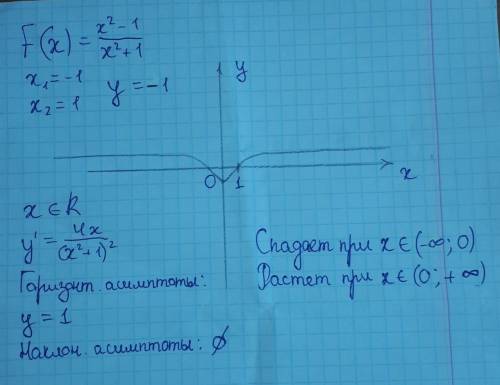 F(x) = x²-1 / x²+1
x₁ = -1
x₂ = 1
y = -1
y
0
1
x
x ∈ R
y' = 4x / (x²+1)²
Горизонт. асимптоты:
y = 1
Наклон. асимптоты: ∅
Спадает при x ∈ (-∞; 0)
Растет при x ∈ (0; +∞)